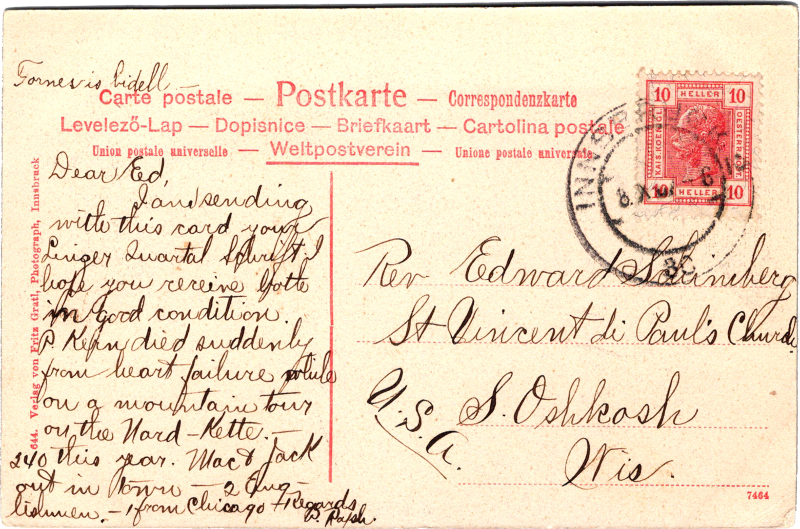 Fornes is bidell —
Carte postale — Postkarte — Correspondenzkarte
Levelező-Lap — Dopisnice — Briefkaart — Cartolina postale
Union postale universelle — Weltpostverein — Unione postale universale
10 HELLER 10
KAIS. KOENIGL. OESTERR. POST
10 HELLER 10
INNSBRUCK
8.X
Dear Ed,
I am sending
with this card your
Linzer Quartal Schrift I
hope you receive
in good condition.
P Kern died suddenly
from heart failure while
on a mountain tour
on the Nord-Kette. —
240 this year. Mac & Jack
out in town — 2 Eng-
lishmen. — 1 from Chicago — Regards
P. Ralph.
Rev Edward
St Vincent di Paul's Church
S. Oshkosh
Wis.
U.S.A.
644. Verlag von Fritz Gratl, Photograph, Innsbruck
7464